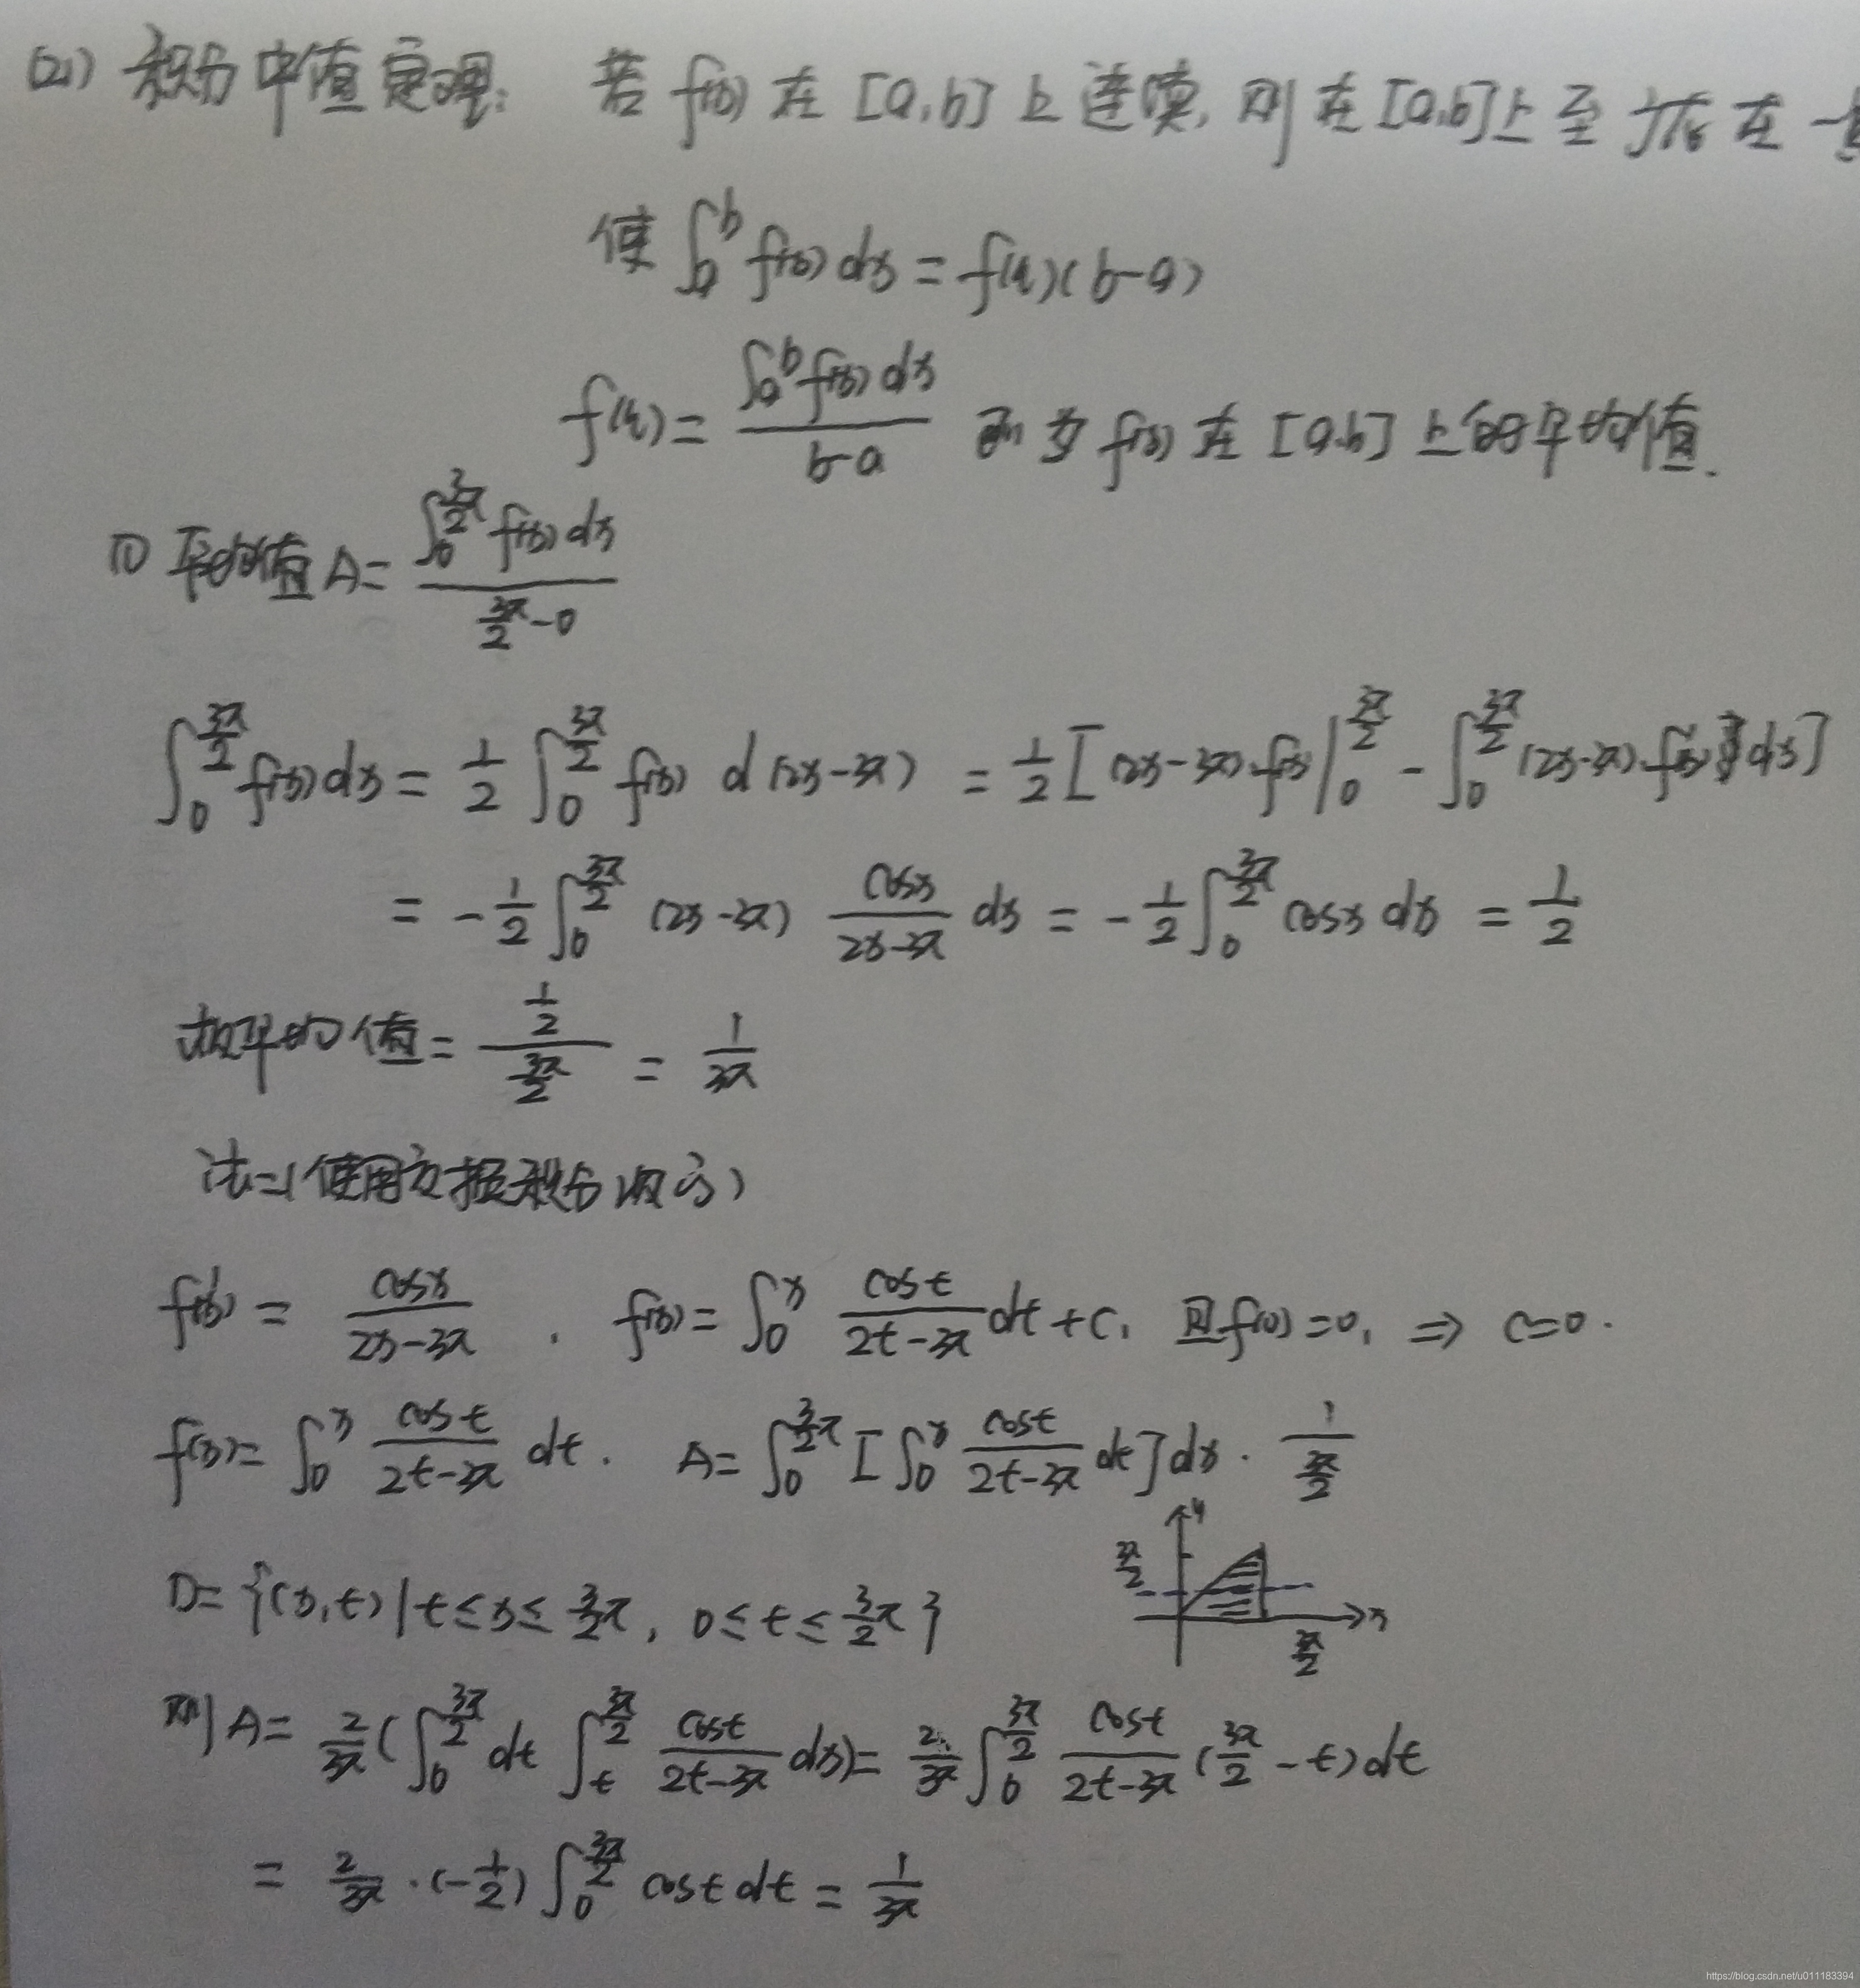 (21) 积分中值定理: 若 f(x) 在 [a,b] 上连续, 则在 [a,b] 上至少存在一
使 ∫_a^b f(x) dx = f(ξ)(b-a)
f(ξ) = \frac{∫_a^b f(x) dx}{b-a} 称为 f(x) 在 [a,b] 上的平均值.
(1) 平均值 A = \frac{∫_0^{\frac{3π}{2}} f(x) dx}{\frac{3π}{2} - 0}
∫_0^{\frac{3π}{2}} f(x) dx = \frac{1}{2} ∫_0^{\frac{3π}{2}} f(x) d(2x-3π) = \frac{1}{2} [(2x-3π)·f(x)|_0^{\frac{3π}{2}} - ∫_0^{\frac{3π}{2}} (2x-3π)·f'(x) dx]
= -\frac{1}{2} ∫_0^{\frac{3π}{2}} (2x-3π) \frac{cosx}{2x-3π} dx = -\frac{1}{2} ∫_0^{\frac{3π}{2}} cosx dx = \frac{1}{2}
故平均值 = \frac{\frac{1}{2}}{\frac{3π}{2}} = \frac{1}{3π}
法二(使用交换积分次序)
f'(x) = \frac{cosx}{2x-3π}, f(x) = ∫_0^x \frac{cost}{2t-3π} dt + C, 且f(0)=0, ⇒ C=0.
f(x) = ∫_0^x \frac{cost}{2t-3π} dt. A = ∫_0^{\frac{3}{2}π} [∫_0^x \frac{cost}{2t-3π} dt] dx · \frac{1}{\frac{3π}{2}}
y
\frac{3π}{2}
D = {(x,t) | t ≤ x ≤ \frac{3}{2}π, 0 ≤ t ≤ \frac{3}{2}π}
x
\frac{3π}{2}
则 A = \frac{2}{3π} (∫_0^{\frac{3π}{2}} dt ∫_t^{\frac{3π}{2}} \frac{cost}{2t-3π} dx) = \frac{2}{3π} ∫_0^{\frac{3π}{2}} \frac{cost}{2t-3π} (\frac{3π}{2} - t) dt
= \frac{2}{3π} · (-\frac{1}{2}) ∫_0^{\frac{3π}{2}} cost dt = \frac{1}{3π}
https://blog.csdn.net/u011183394